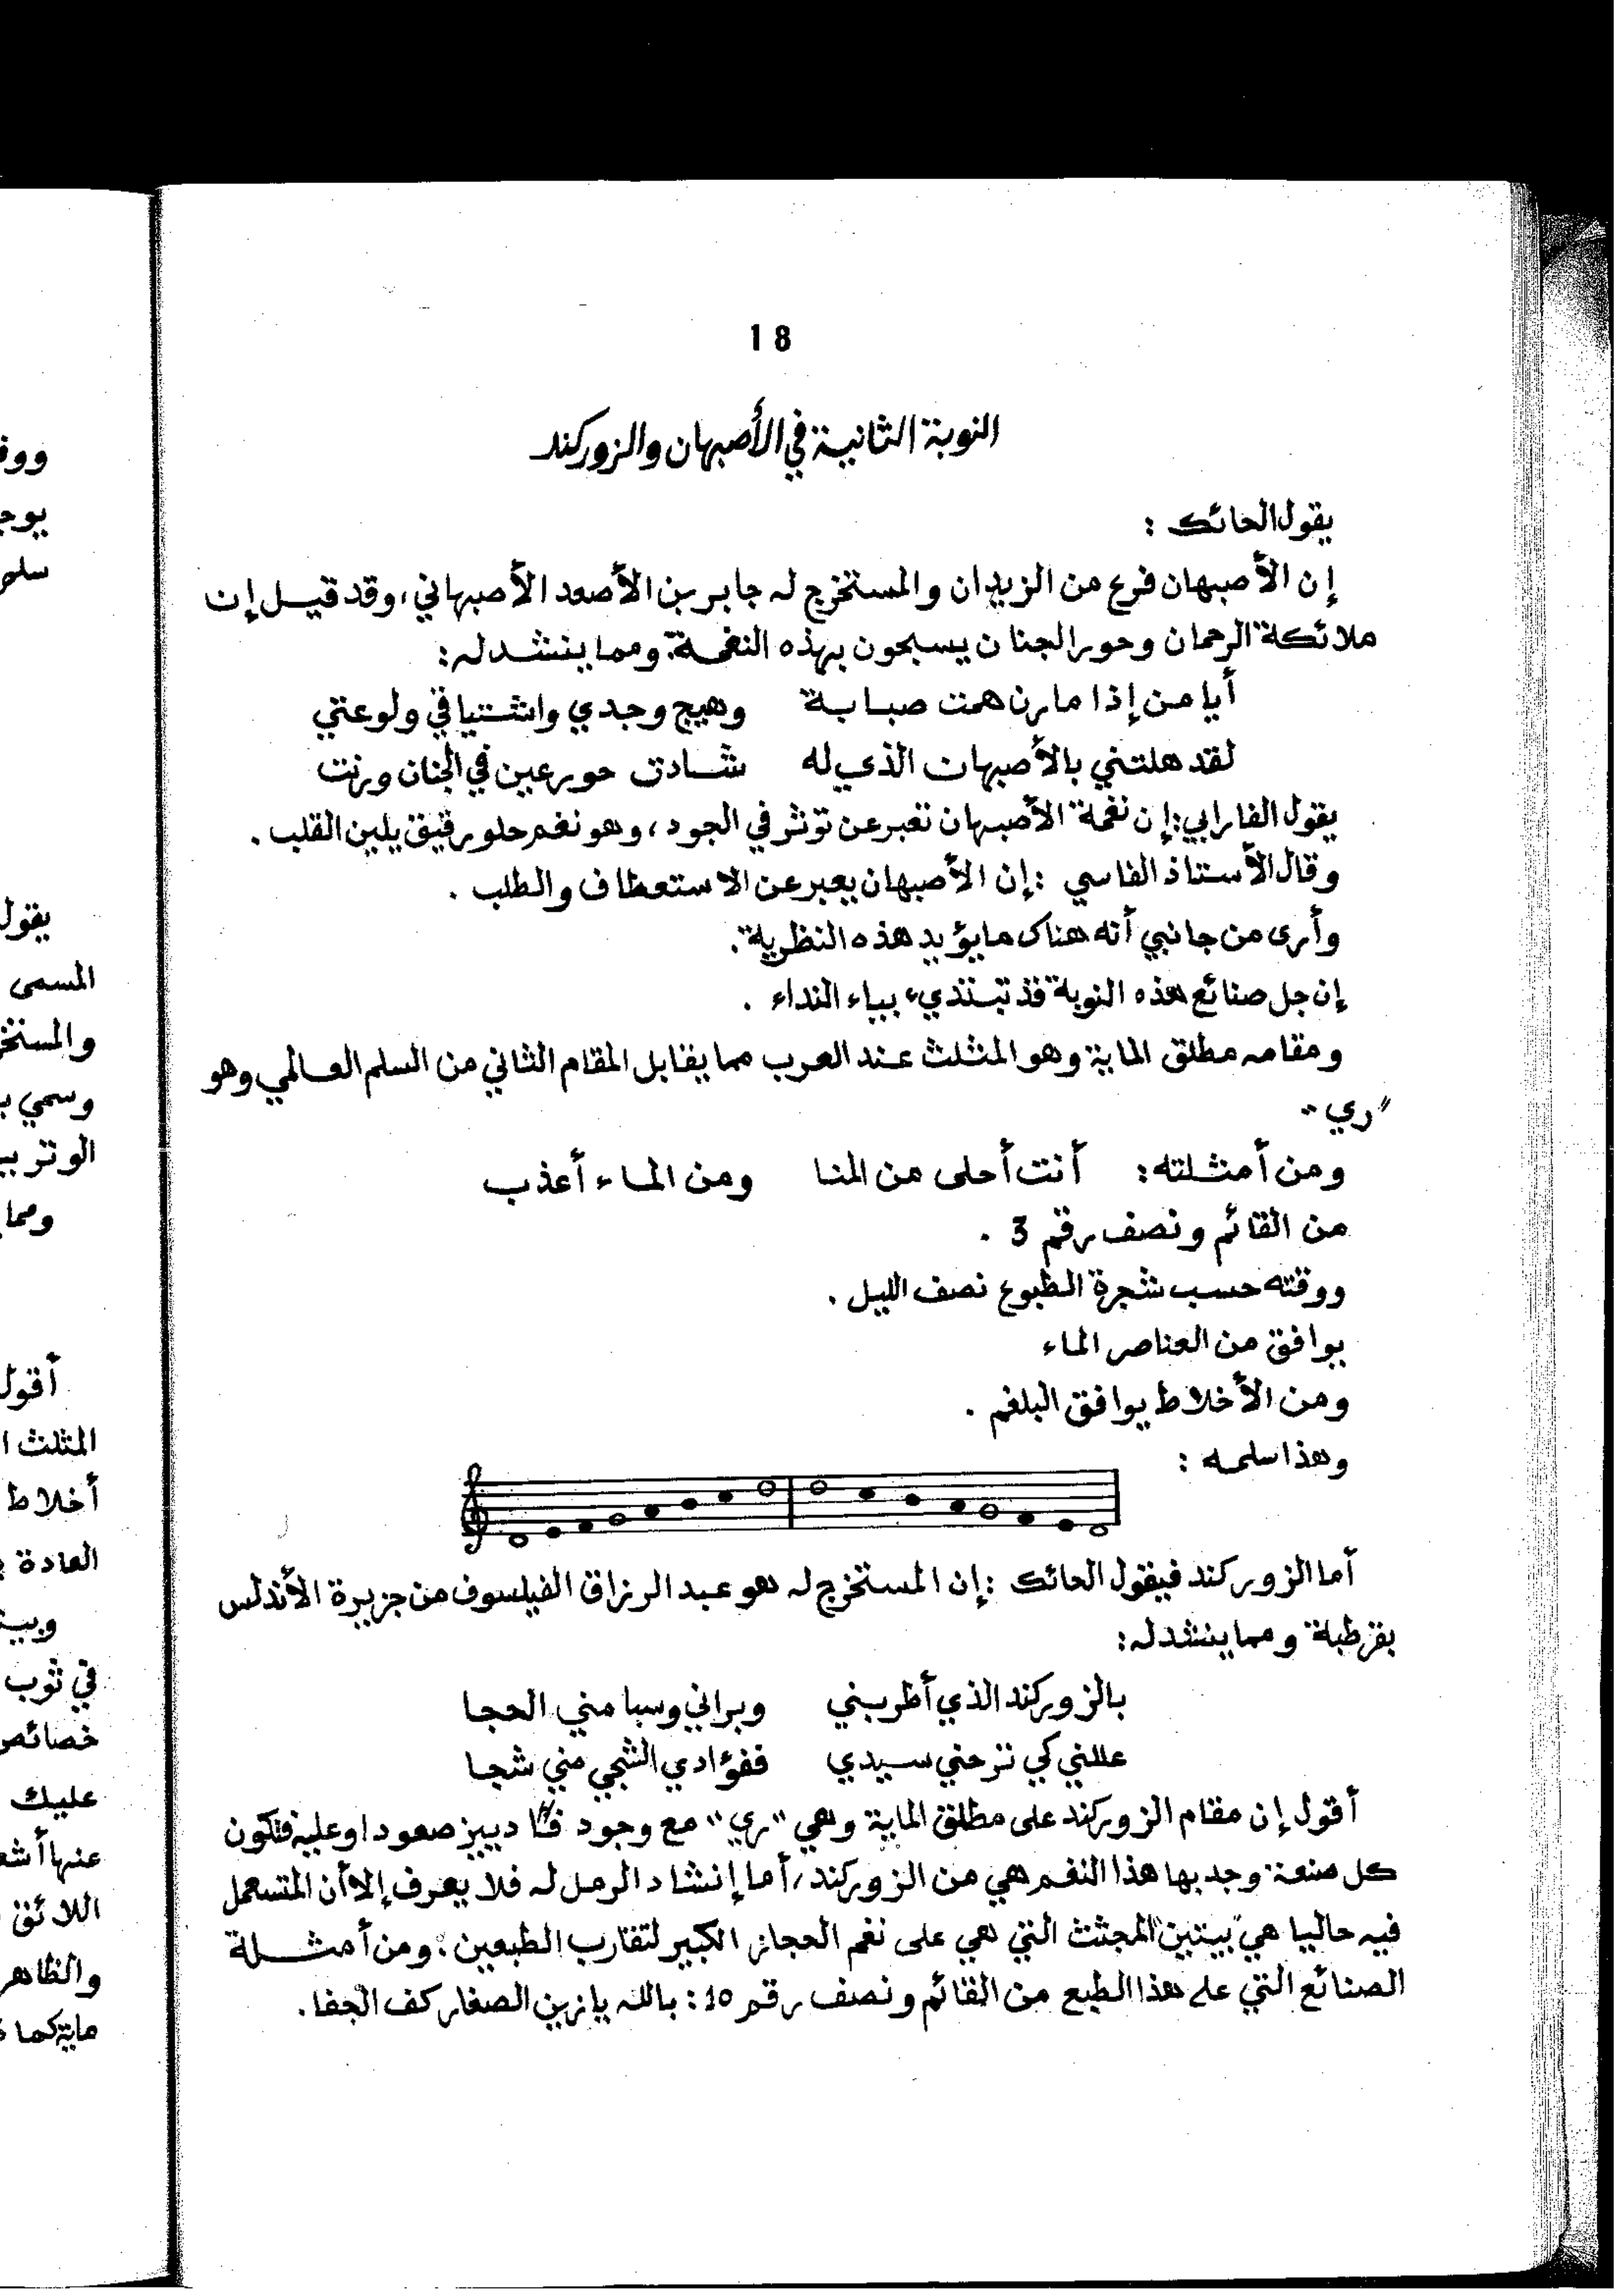 18
النوبة الثانية في الأصبهان والزوركند
يقول الحائك :
إن الأصبهان فرع من الزيدان والمستخرج له جابر بن الأصعد الأصبهاني، وقد قيل إن
ملائكة الرحمان وحور الجنان يسبحون بهذه النغمة. ومما ينشد له:
أيا من إذا ما رن همت صبابة وهيج وجدي واشتياقي ولوعتي
لقد هلتني بالأصبهان الذي له شادن حور عين في الجنان ورنت
يقول الفارابي: إن نغمة الأصبهان تعبر عن توثر في الجود، وهو نغم حلو رقيق يلين القلب .
وقال الأستاذ الفاسي : إن الأصبهان يعبر عن الاستعطاف والطلب .
وأرى من جانبي أنه هناك ما يؤيد هذه النظرية.
إن جل صنائع هذه النوبة قد تبتديء بياء النداء .
ومقامه مطلق الماية وهو المثلث عند العرب مما يقابل المقام الثاني من السلم العالمي وهو
"ري"
ومن أمثلته: أنت أحلى من المنا ومن الماء أعذب
من القائم ونصف رقم 3 .
ووقته حسب شجرة الطبوع نصف الليل .
يوافق من العناصر الماء
ومن الأخلاط يوافق البلغم .
وهذا سلمه :
أما الزوركند فيقول الحائك : إن المستخرج له هو عبد الرزاق الفيلسوف من جزيرة الأندلس
بقرطبة ومما ينشد له:
بالزوركند الذي أطربني وبراني وسبا مني الحجا
عللني كي ترحني سيدي ففؤادي الشجي مني شجا
أقول إن مقام الزوركند على مطلق الماية وهي "ري" مع وجود فا دييز صعودا وعليه فتكون
كل صنعة وجد بها هذا النغم هي من الزوركند، أما إنشاد الرمل له فلا يعرف إلا أن المتسعمل
فيه حاليا هي "بيتين" المجتث التي هي على نغم الحجاز الكبير لتقارب الطبعين . ومن أمثلة
الصنائع التي على هذا الطبع من القائم ونصف رقم 10 : بالله يا زين الصغار كف الجفا .
ووق
يوج
سلم
يقول
المسمى
والمستخ
وسمي ب
الوتر ب
ومما
أقول
المثلث ا
أخلاط
العادة
وبيت
في ثوب
خصائص
عليك
عنها أشع
اللائق
والظاهر
ماية كما